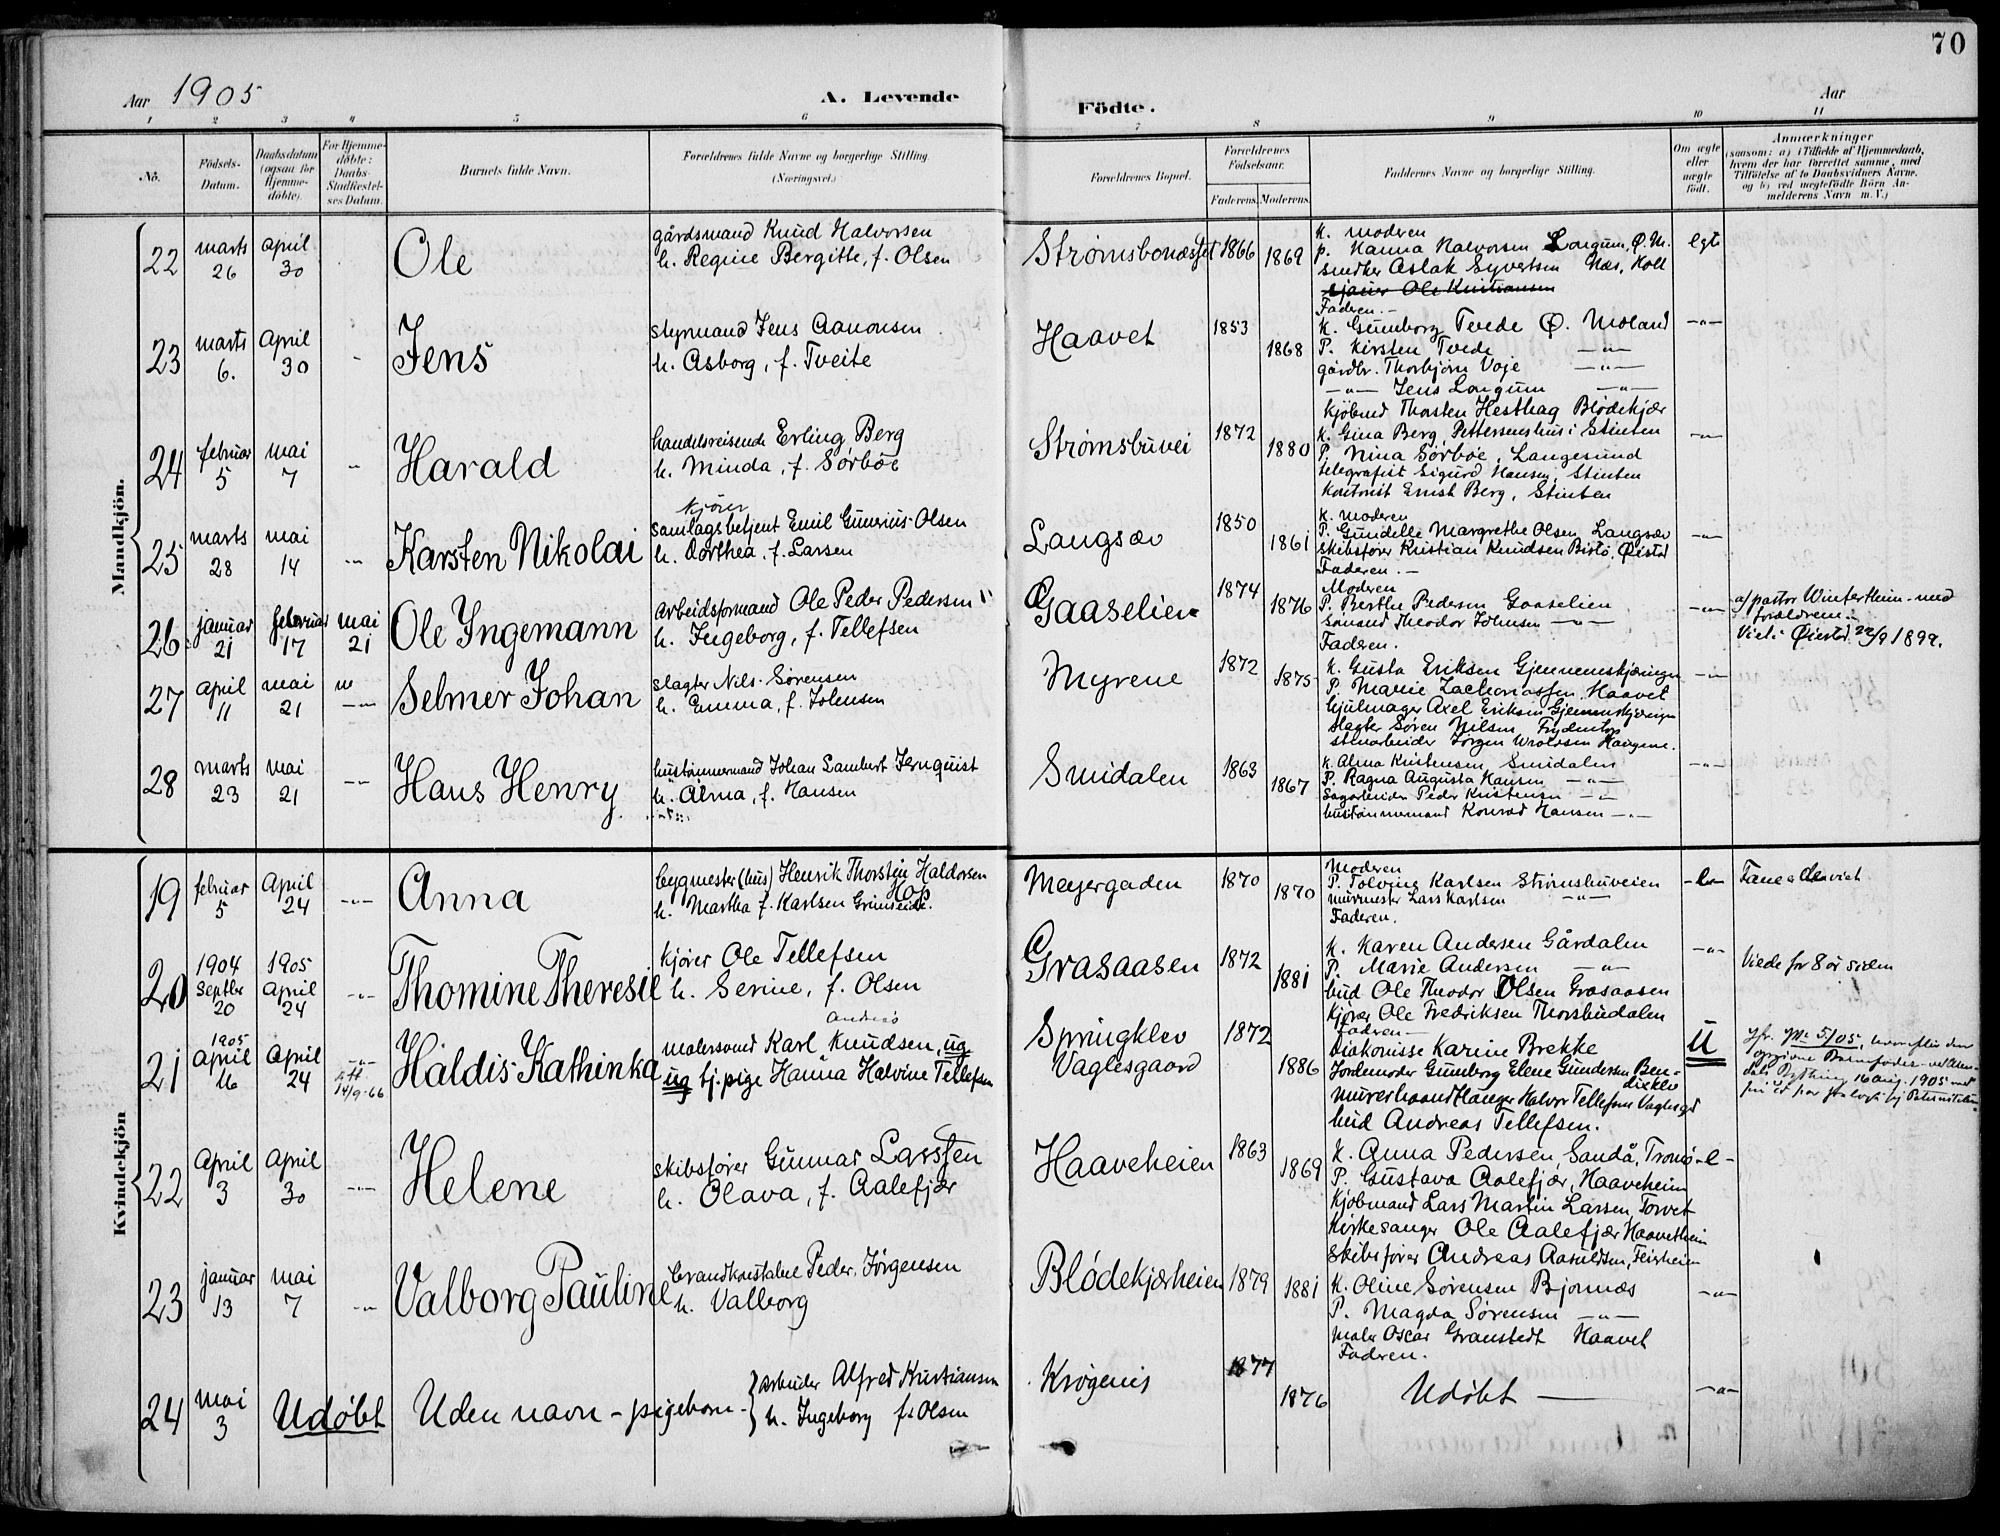 70
Aar 1905
A. Levende
Födte.
Aar
1 2 3 4 5 6 7 8 9 10 11
No.
Födsels-
Datum.
Daabsdatum
(ogsaa for
Hjemme-
döbte).
For Hjemme-
döbte:
Daabs-
Stadfæstel-
ses Datum.
Barnets fulde Navn.
Forældrenes fulde Navne og borgerlige Stilling
(Næringsvei.)
Forældrenes Bopæl.
Forældrenes
Födselsaar.
Faderens.
Moderens.
Faddernes Navne og borgerlige Stilling.
Om ægte
eller
uægte
født.
Anmærkninger
(saasom: a) i Tilfælde af Hjemmedaab,
hvem der har forrettet samme, med
Tilföielse af to Daabsvidners Navne,
og b) ved uægtefödte Börn An-
melderens Navn m. V.)
Mandkjön.
22
marts
26
april
30
Ole
gårdsmand Knud Halvorsen
h. Regine Bergitte, f. Olsen
Strømsbonæsset
1866
1869
K. moderen
P. Hanna Halvorsen Longum, Ø. M.
snedker Aslak Syvertsen Næs, Holt
sjauer Ole Kristiansen
Faderen. -
egte
23
marts
6.
April
30
Jens
styrmand Jens Aanonsen
h. Asborg, f. Tveite
Haavet
1853
1868
K. Gunnborg Tvede Ø. Moland
P. Kirsten Tvede -"-
gårdbr. Thorbjørn Voje -"-
-"- Jens Longum -"-
kjøbmd Thorsten Hesthag Blødekjær
-"-
24
februar
5
mai
7
-"-
Harald
handelsreisende Erling Berg
h. Minda, f. Sørbøe
Strømsbuvei
1872
1880
K. Gina Berg, Pettersenshus i Stinten
P. Nina Sørbøe, Langesund
telegrafist Sigurd Hansen, Stinten
Kontorist Ernst Berg, Stinten
-"-
25
marts
28
mai
14
-"-
Karsten Nikolai
kjører
samlagsbetjent Emil Gunerius Olsen
h. Dorthea, f. Larsen
Langsæv
1850
1861
K. Moderen
P. Gundelle Margrethe Olsen, Langsæv
skibsfører Kristian Knudsen Bistø, Øiestad
Faderen. -
-"-
26
januar
21
februar
17
mai
21
Ole Ingemann
arbeidsformand Ole Peder Pedersen
h. Ingeborg, f. Tellefsen
Gaaselien
1874
1876
Moderen
P. Berthe Pedersen Gaaselien
sømand Theodor Johnsen -"-
Faderen.
-"-
af pastor Winterheim med
forældrene.
Viet i Øiestad 22/9 1899.
27
April
11
mai
21
-"-
Selmer Johan
slagter Nils Sørensen
h. Emma, f. Johnsen
Myrene
1872
1875
K. Gusta Eriksen Gjennemskjæringen
P. Marie Zachariassen, Haavet
hjulmager Axel Eriksen Gjennemskjæringen
slagter Søren Nilsen, Frydentop
stenarbeider Jørgen Wroldsen Haugene.
-"-
28
marts
23
mai
21
-"-
Hans Henry
hustømmermand Johan Lambert Jernquist
h. Alma, f. Hansen
Smidalen
1863
1867
K. Alma Kristensen, Smidalen
P. Ragna Augusta Hansen -"-
Sagarbeider Peder Kristensen -"-
hustømmermand Konrad Hansen -"-
-"-
Kvindekjön
19
februar
5
April
24
-"-
Anna
bygmester (hus) Henrik Thorstein Haldorsen
Hop
h. Martha f. Karlsen Grimseide.
Meyergaden
1870
1870
Moderen
P. Tolvine Karlsen Strømsbuveien
murmester Lars Karlsen -"-
Faderen.
-e-
20
1904
Septbr
20
1905
April
24
-"-
Thomine Theresie
kjører Ole Tellefsen
h. Serine, f. Olsen
Grasaasen
1872
1881
K. Karen Andersen Gårdalen
P. Marie Andersen -"-
bud Ole Theodor Olsen Grasaasen
kjører Ole Fredriksen Thorsbudalen
Faderen -
-"-
Viede for 8 år siden
21
1905
April
16
April
24
-"-
14/9-66
Haldis Kathinka
Andreas
malersvend Karl Knudsen, ug
ug tj.pige Hanna Halvine Tellefsen
Springklev
Vaglesgaard
1872
1886
Diakonisse Karine Brekke
Jordemoder Gunnborg Elene Gundersen Ben-
diklev
murerhaandtlanger Halvor Tellefsen Vaglesgd
bud Andreas Tellefsen.
U
22
April
3
April
30
-"-
Helene
skibsfører Gunnar Larssen
h. Olava, f. Aalefjær
Haaveheien
1863
1869
K. Anna Pedersen, Sandå, Tromø
P. Gustava Aalefjær, Haaveheien
Kjøbmand Lars Martin Larsen, Torvet
Kirkesanger Ole Aalefjær Haaveheien
Skibsfører Andreas Aaneldsen, Feirheien
-e-
23
januar
13
mai
7
-"-
Valborg Pauline
brandkonstabel Peder Jørgensen
h. Valborg
Blødekjærheien
1879
1881
K. Oline Sørensen Bjornæs
P. Magda Sørensen -"-
maler Oscar Granstedt Haavet
Faderen.
-"-
24
mai
3
Udøbt
Uden navn - pigebarn -
arbeider Alfred Kristiansen
h. Ingeborg f. Olsen
Krøgenes
1877
1876
Udøbt
-"-